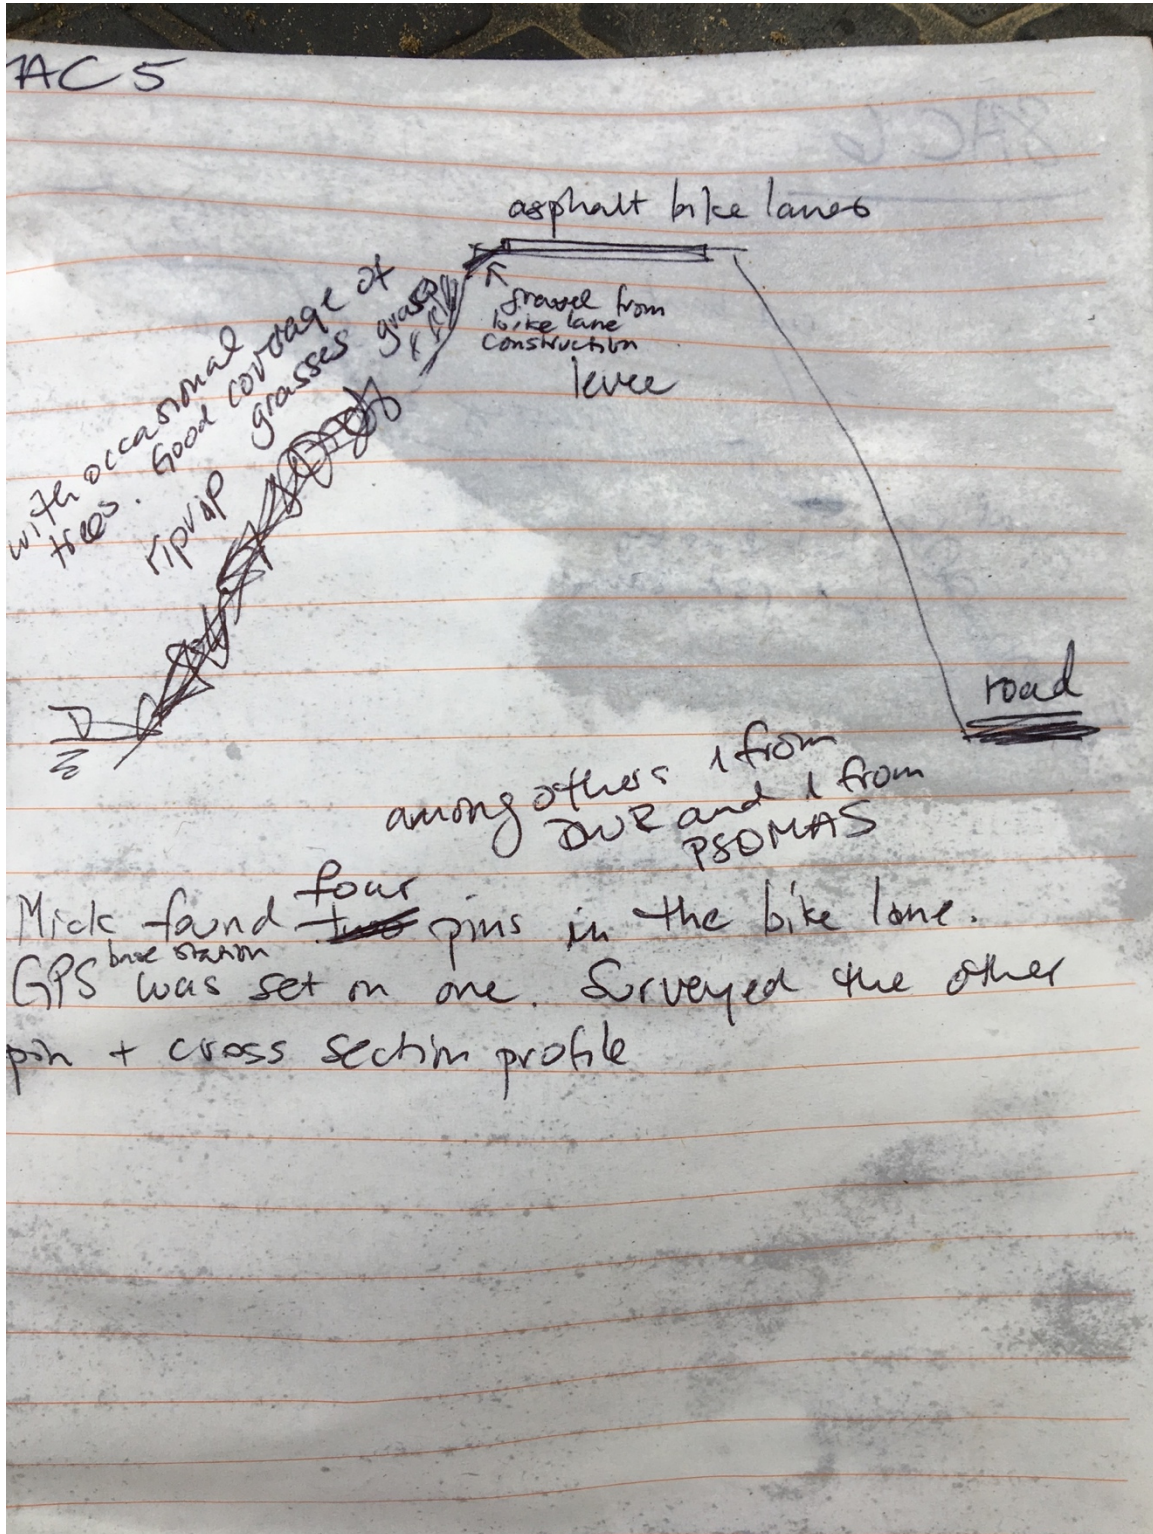 AC 5
asphalt bike lanes
gravel from
bike lane
construction
levee
with occasional
trees. Good coverage of
grasses
riprap
grass
road
among others 1 from
DWR and 1 from
PSOMAS
four
Mick found two pins in the bike lane.
base station
GPS was set on one. Surveyed the other
pin + cross section profile